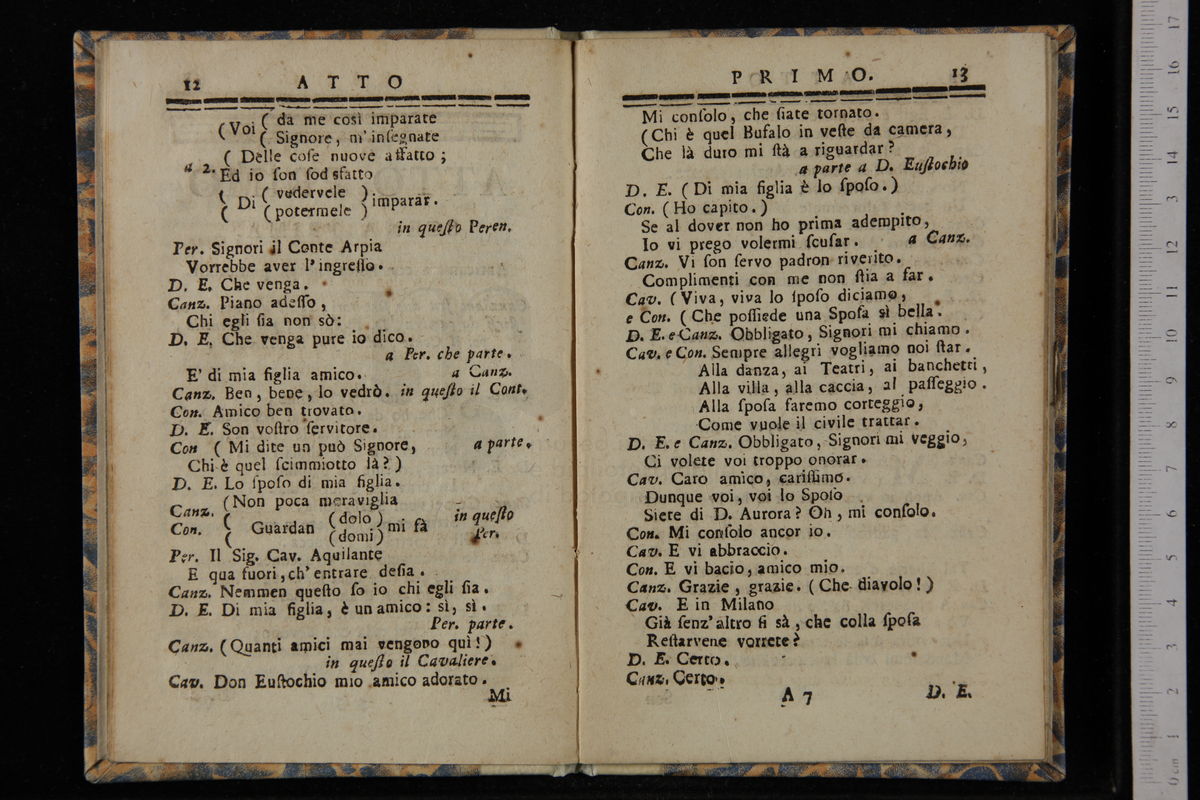 12 ATTO
(Voi ( da me così imparate
( Signore, m'inſegnate
( Delle coſe nuove affatto;
a 2. Ed io ſon ſod sfatto
( Di ( vedervele ) imparar.
( ( potermele )
in queſto Peren.
Per. Signori il Conte Arpia
Vorrebbe aver l'ingreſſo.
D. E. Che venga.
Canz. Piano adeſſo,
Chi egli ſia non sò:
D. E. Che venga pure io dico.
a Per. che parte.
E' di mia figlia amico. a Canz.
Canz. Ben, bene, lo vedrò. in queſto il Cont.
Con. Amico ben trovato.
D. E. Son voſtro ſervitore.
Con ( Mi dite un può Signore, a parte.
Chi è quel ſcimmiotto là?)
D. E. Lo ſpoſo di mia figlia.
Canz. (Non poca meraviglia
Con. ( Guardan (dolo) mi fà in queſto
( (domi) Per.
Per. Il Sig. Cav. Aquilante
E qua fuori, ch' entrare deſia.
Canz. Nemmen queſto ſo io chi egli ſia.
D. E. Di mia figlia, è un amico: sì, sì.
Per. parte.
Canz. (Quanti amici mai vengono quì!)
in queſto il Cavaliere.
Cav. Don Euſtochio mio amico adorato.
Mi
PRIMO. 13
Mi conſolo, che ſiate tornato.
(Chi è quel Bufalo in veſte da camera,
Che là duro mi ſtà a riguardar?
a parte a D. Euſtochio
D. E. (Di mia figlia è lo ſpoſo.)
Con. (Ho capito.)
Se al dover non ho prima adempito,
Io vi prego volermi ſcuſar. a Canz.
Canz. Vi ſon ſervo padron riverito.
Complimenti con me non ſtia a far.
Cav. (Viva, viva lo ſpoſo diciamo,
e Con. (Che poſſiede una Spoſa sì bella.
D. E. e Canz. Obbligato, Signori mi chiamo.
Cav. e Con. Sempre allegri vogliamo noi ſtar.
Alla danza, ai Teatri, ai banchetti,
Alla villa, alla caccia, al paſſeggio.
Alla ſpoſa faremo corteggio,
Come vuole il civile trattar.
D. E. e Canz. Obbligato, Signori mi veggio,
Ci volete voi troppo onorar.
Cav. Caro amico, cariſſimo.
Dunque voi, voi lo Spoſo
Siete di D. Aurora? Oh, mi conſolo.
Con. Mi conſolo ancor io.
Cav. E vi abbraccio.
Con. E vi bacio, amico mio.
Canz. Grazie, grazie. (Che diavolo!)
Cav. E in Milano
Già ſenz' altro ſi sà, che colla ſpoſa
Reſtarvene vorrete?
D. E. Certo.
Canz. Certo.
A 7 D. E.
0 cm 1 2 3 4 5 6 7 8 9 10 11 12 13 14 15 16 17